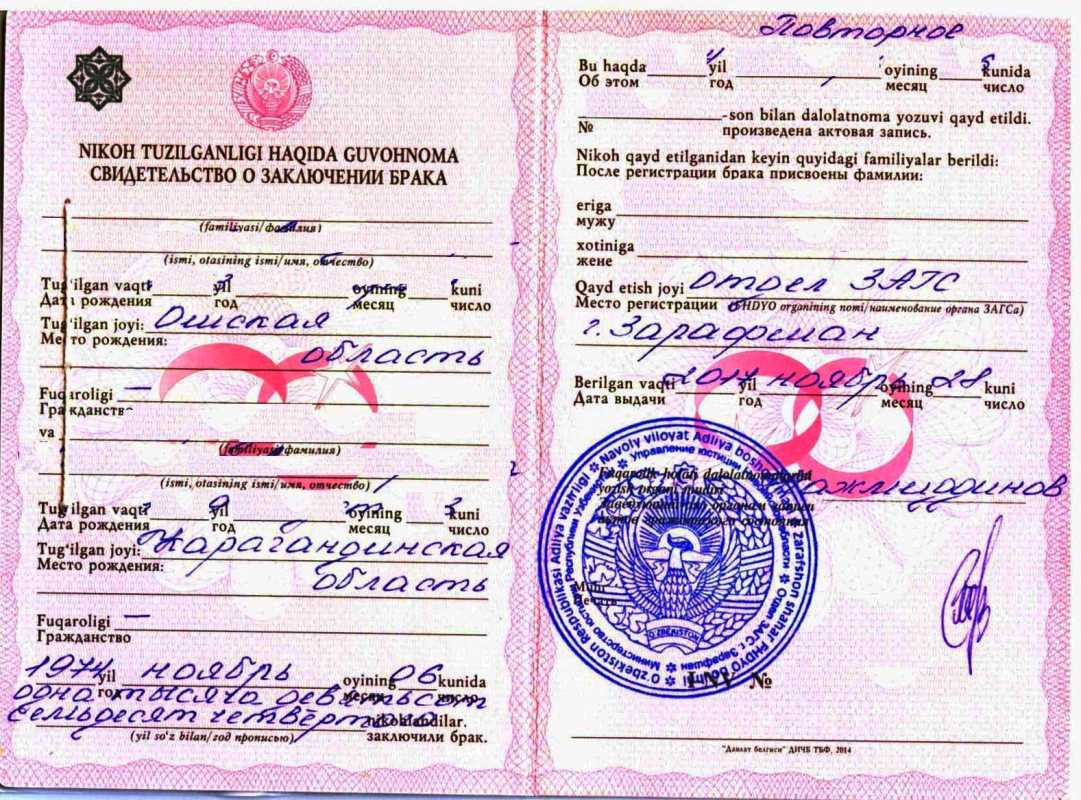 NIKOH TUZILGANLIGI HAQIDA GUVOHNOMA
СВИДЕТЕЛЬСТВО О ЗАКЛЮЧЕНИИ БРАКА
(familiyasi/фамилия)
(ismi, otasining ismi/имя, отчество)
Tug‘ilgan vaqti yil oyining kuni
Дата рождения год месяц число
Tug‘ilgan joyi: Ошская
Место рождения: область
Fuqaroligi —
Гражданств
va
(familiyasi/фамилия)
(ismi, otasining ismi/имя, отчество)
Tug‘ilgan vaqti yil oyining kuni
Дата рождения год месяц число
Tug‘ilgan joyi: Карагандинская
Место рождения: область
Fuqaroligi —
Гражданство
1974 yil ноябрь oyining 06 kunida
год месяц число
одна тысяча девятьсот
семьдесят четвёртого nikohlandilar.
(yil so‘z bilan/год прописью) заключили брак.
Повторное
Bu haqda yil oyining kunida
Об этом год месяц число
-son bilan dalolatnoma yozuvi qayd etildi.
№ произведена актовая запись.
Nikoh qayd etilganidan keyin quyidagi familiyalar berildi:
После регистрации брака присвоены фамилии:
eriga
мужу
xotiniga
жене
Qayd etish joyi отдел ЗАГС
Место регистрации (FHDYO organining nomi/наименование органа ЗАГСа)
г. Зарафшан
Berilgan vaqti 2017 yil ноябрь oyining 28 kuni
Дата выдачи год месяц число
Fuqarolik holati dalolatnomalarini
yozish organi mudiri
Заведующий органом записи
актов гражданского состояния
O‘ZBEKISTON
№
"Давлат белгиси" ДИЧБ ТБФ, 2014